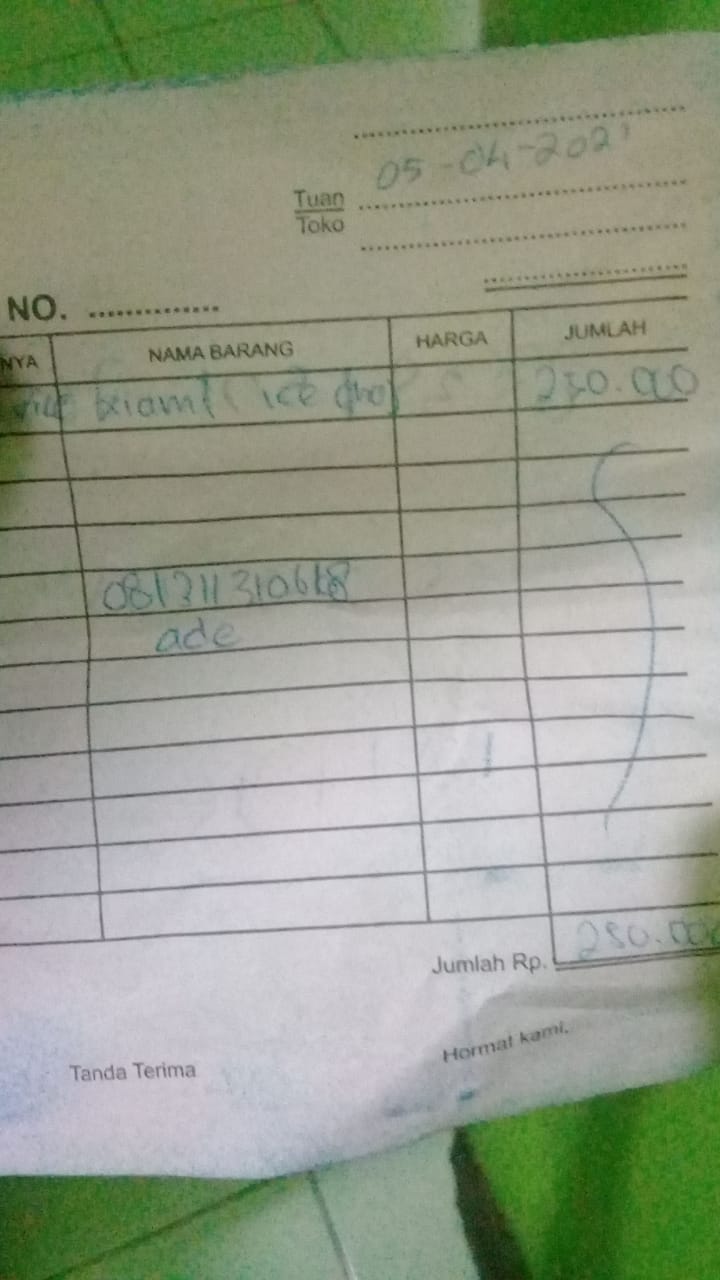 05-04-2021
Tuan
Toko
NO.
NYA NAMA BARANG HARGA JUMLAH
250.000
ade
Jumlah Rp. 250.000
Tanda Terima Hormat kami,